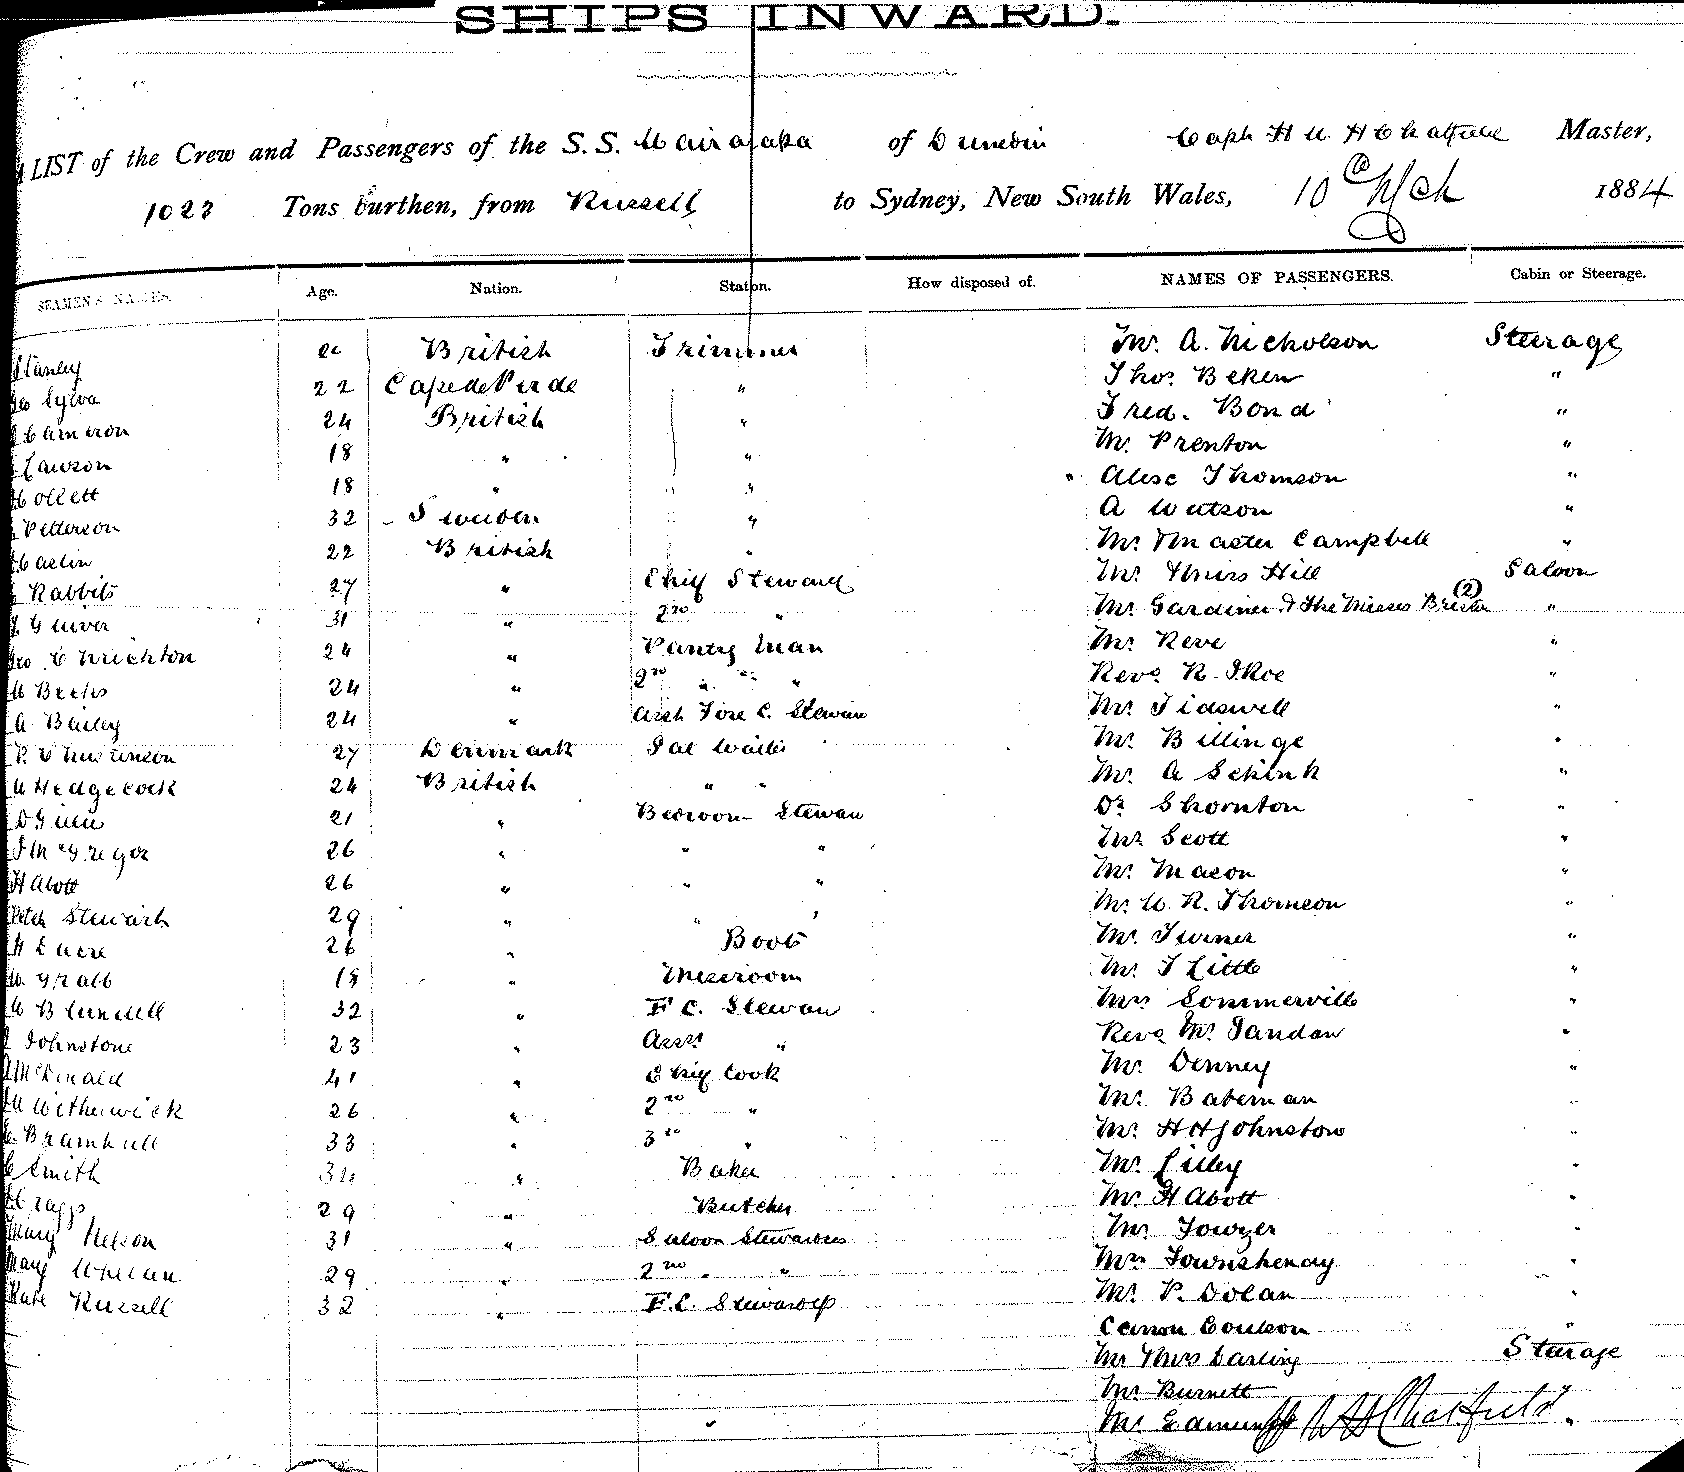 SHIPS INWARD.
LIST of the Crew and Passengers of the S.S. Wairarapa of Dunedin Capt Chatfield Master,
1023 Tons burthen, from Russell to Sydney, New South Wales, 10th Mch 1884
SEAMEN'S NAMES. Age. Nation. Station. How disposed of. NAMES OF PASSENGERS. Cabin or Steerage.
Stanley British Trimmer Mr. A. Nicholson Steerage
Sylva 22 Cape de Verde " Thos. Beken "
Cameron 24 British " Fred. Bond "
Lawson 18 " " Mr. Prenton "
Collett 18 " " " Thomson "
Petterson 32 Sweden " A Watson "
22 British " Campbell "
Rabbits 27 " Chief Steward Mr. & Miss Hill Saloon
31 " 2nd " Mr Gardiner & The Misses (2) "
Geo C Wrichton 24 " Pantry Man Mr Reve "
24 " 2nd " " Revd. R. "
A. Bailey 24 " Asst Fore C. Steward Mr. Tidswell "
27 Denmark Sal Waiter Mr. Billinge "
Hedgecock 24 British " " Mr. A Schink "
21 " Bedroom Steward Dr. Thornton "
McGregor 26 " " " Mr. Scott "
H Abott 26 " " " Mr. Mason "
Peter Stewart 29 " " " Mr. W. R. Thomson "
26 " Boots Mr. Turner "
18 " Messroom Mr. T Little "
W Blundell 32 " F C. Steward Mrs Sommerville "
Johnstone 23 " Asst " Revd Mr. "
McDonald 41 " Chief Cook Mr. Denney "
Witherwick 26 " 2nd " Mr. Bateman "
Bramhall 33 " 3rd " Mr. H H Johnston "
C Smith " Baker Mr. Lilley "
Cragg 29 " Butcher Mr. H Abott "
Mary Nelson 31 " Saloon Stewardess Mr "
Mary Whelan 29 " 2nd " " Mrs "
Kate Russell 32 " F.C. Stewardess Mr. P. Dolan "
Canon Coulson "
Mr & Mrs Darling Steerage
Mr Burnett
Mr Chatfield